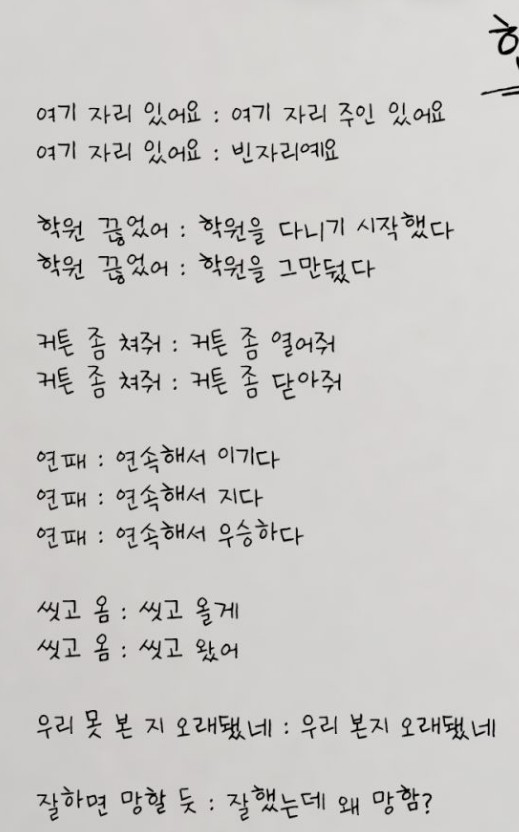 여기 자리 있어요 : 여기 자리 주인 있어요
여기 자리 있어요 : 빈자리예요
학원 끊었어 : 학원을 다니기 시작했다
학원 끊었어 : 학원을 그만뒀다
커튼 좀 쳐줘 : 커튼 좀 열어줘
커튼 좀 쳐줘 : 커튼 좀 닫아줘
연패 : 연속해서 이기다
연패 : 연속해서 지다
연패 : 연속해서 우승하다
씻고 옴 : 씻고 올게
씻고 옴 : 씻고 왔어
우리 못 본 지 오래됐네 : 우리 본지 오래됐네
잘하면 망할 듯 : 잘했는데 왜 망함?